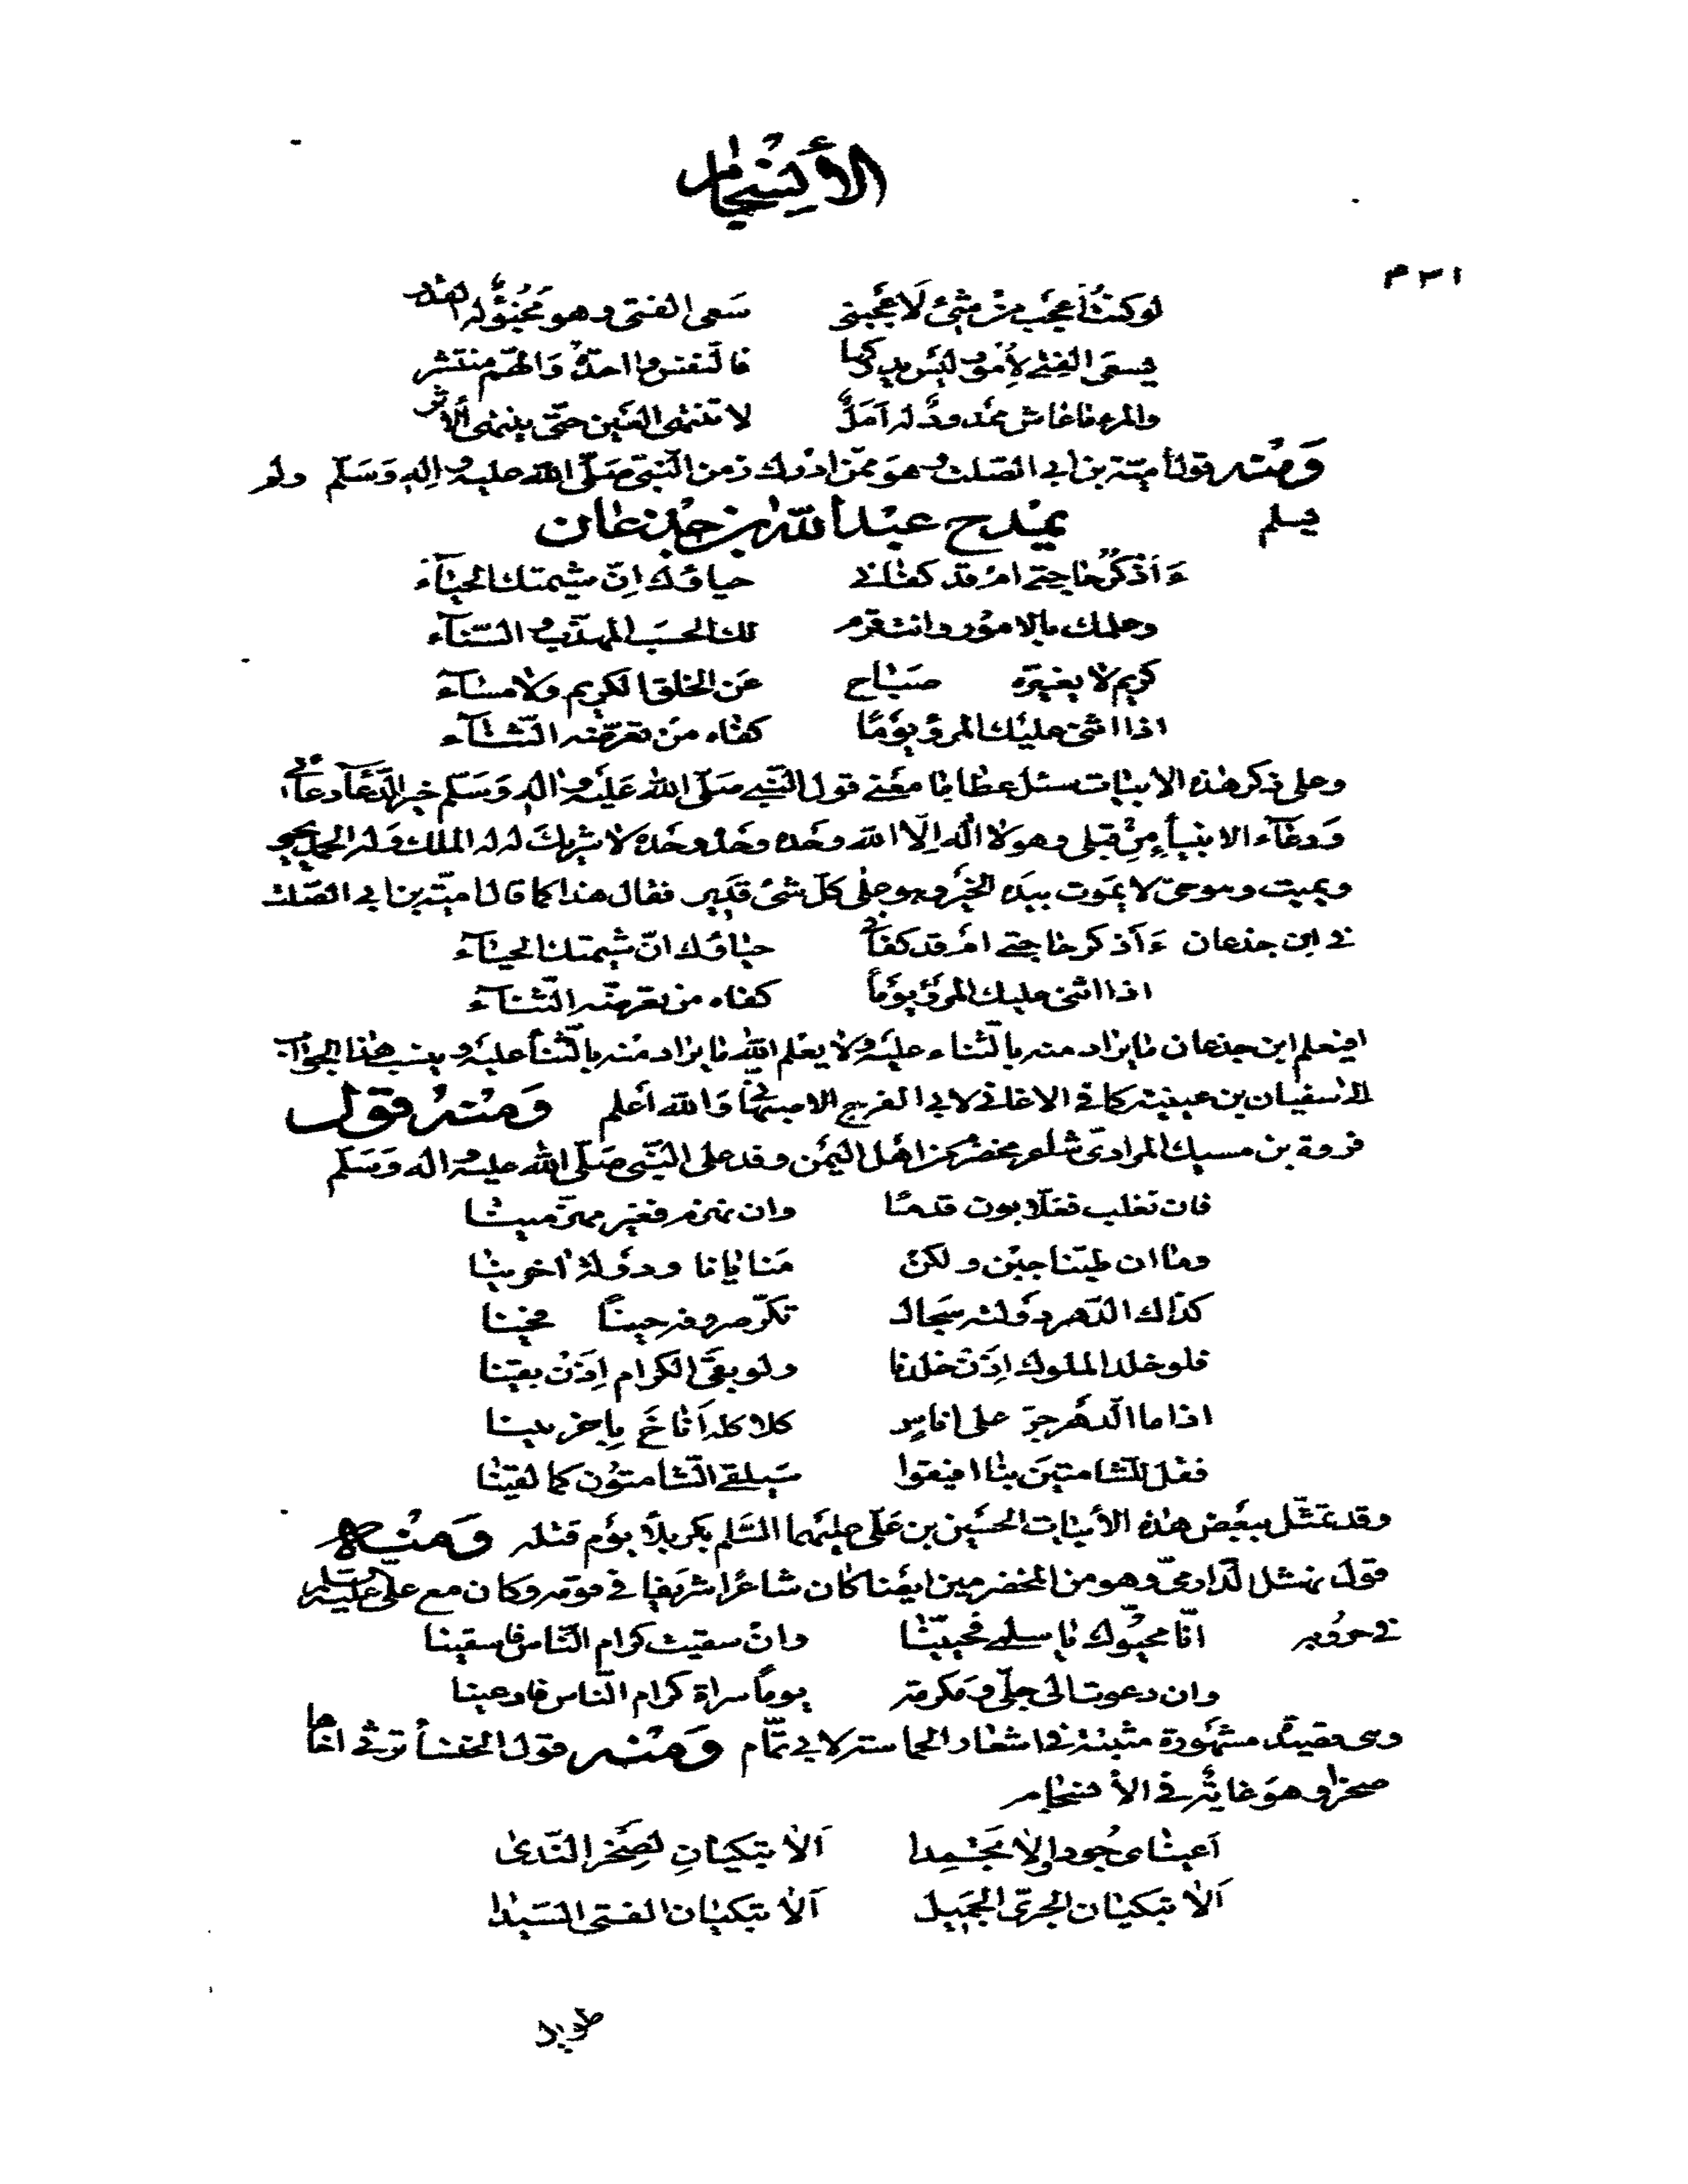 الأنسجام
لو كنتُ أعجب من شيء لأعجبني سَعى الفتى وهو مَخبُوٌّ له القدر
يسعَى الفتى لأمور ليس يدركها فالنفس واحدةٌ وَالهمّ منتشر
والمرء ما عاش ممدودٌ له اَمَلٌ لا تنتهى العَين حتّى ينتهى ألاثر
وَمنْه قول أميّة بن أبي الصّلت وهوَ ممّن ادْرك زمن النّبيّ صَلّى الله عليه واٰلِه وَسَلّم ولم
يسلم يمْدح عبْدالله ابن جدْعان
ءَاَذْكُرُ حاجتي امْ قد كفاني حياؤك اِنّ شيمتك الحيَآء
وعلمك بالامور وانت قرم لك الحسَب المهذّب والسّنآء
كريم لا يغيّره صَبٰاح عَن الخلق الكريم وَلا مسٰآء
اذا اثنى عليْك المرؤ يوْمًا كفٰاه منْ تعرّضه الثّنٰآء
وعلى ذكر هٰذه الابيٰات سئل عطا ما معْنى قول النّبي صَلّى الله عَليْه واٰله وَسَلّم خير الدّعَآء دعآئى
وَدعٰآء الانبيٰأء مِنْ قبلى وهو لا اله اِلّا الله وحْده وحْده وحْده لا شريكَ له له الملك وَله الحمد يحيى
ويميت وهو حىّ لا يمَوت بيده الخيْر وهو على كلّ شئ قدير فقال هذا كما قال اميّة بن ابي الصّلت
في ابن جذعان ءَاَذكر حاجتي امْ قد كفٰاني حيٰاؤك انّ شيمتك الحيٰآء
اذا اثنى عليك المرؤ يوْماً كفاه من تعرّضه الثّنٰآء
افيعلم ابن جذعان مٰا يراد منه بالثّناء عليْه ولا يعْلم الله مٰا يراد منْه بالثّنأ عليْه وينسب هٰذا الجوٰاب
الى سفيٰان بن عيينة كما في الاغاني لابي الفرج الاصبهاني وَاللّه أعلم وَمنْهُ قول
فروة بن مسيك المراديّ شاعر مخضرم من اهْل اليمَن وفد على النّبي صَلّى اللّه عليه واله وَسَلّم
فان نغلب فغلّابون قدمًا وان نهزم فغيْر مهزّمينٰا
ومٰا ان طبّنا جبْن ولكنْ مَنايٰانا ودوْلة اخرينٰا
كذاك الدّهر دوْلته سجال تكرّ صروفه حينًا فحينا
فلو خلد الملوك اِذَنْ خلدنا ولو بقىَ الكرام اِذَنْ بقينا
اذا ما الدّهْر جرّ على اناسٍ كلاكله اَنَاخَ بِاٰخرينا
فقل للشّامتينَ بنٰا افيقوا سَيلقى الشّامتوُن كما لقينٰا
وقد تمثّل ببعْض هٰذه الأبيٰات الحسَين بن عَلّى عليهما السّلم بكربلا يوْم قتله وَمنْه
قول نهشل الدّارمىّ وهو من المخضرمين ايضًا كان شاعرًا شريفا في قومه وكان مع علىّ عليه السلم
في حروُبه انّا محيّوك يٰا سلمى فحيّينٰا وانْ سقيت كرام النّاس فاسقينا
وان دعوت الى جلّى وَمكرمة يوماً سراة كرام النّاس فادعينا
وهى قصيدة مشهُورة مثبتة في اشعٰار الحماسة لابي تمّام وَمنْه قول الخنسأ ترثى اخاها
صخرا وهوَ غايةٌ في الأنسجٰام
اَعينٰى جُودا ولا تجْمدا اَلاٰ تبكيٰانِ لِصَخْر النّدىٰ
اَلاٰ تبكيٰان الجرىّ الجميل اَلاٰ تبكيٰان الفتى السّيدٰا
طويل